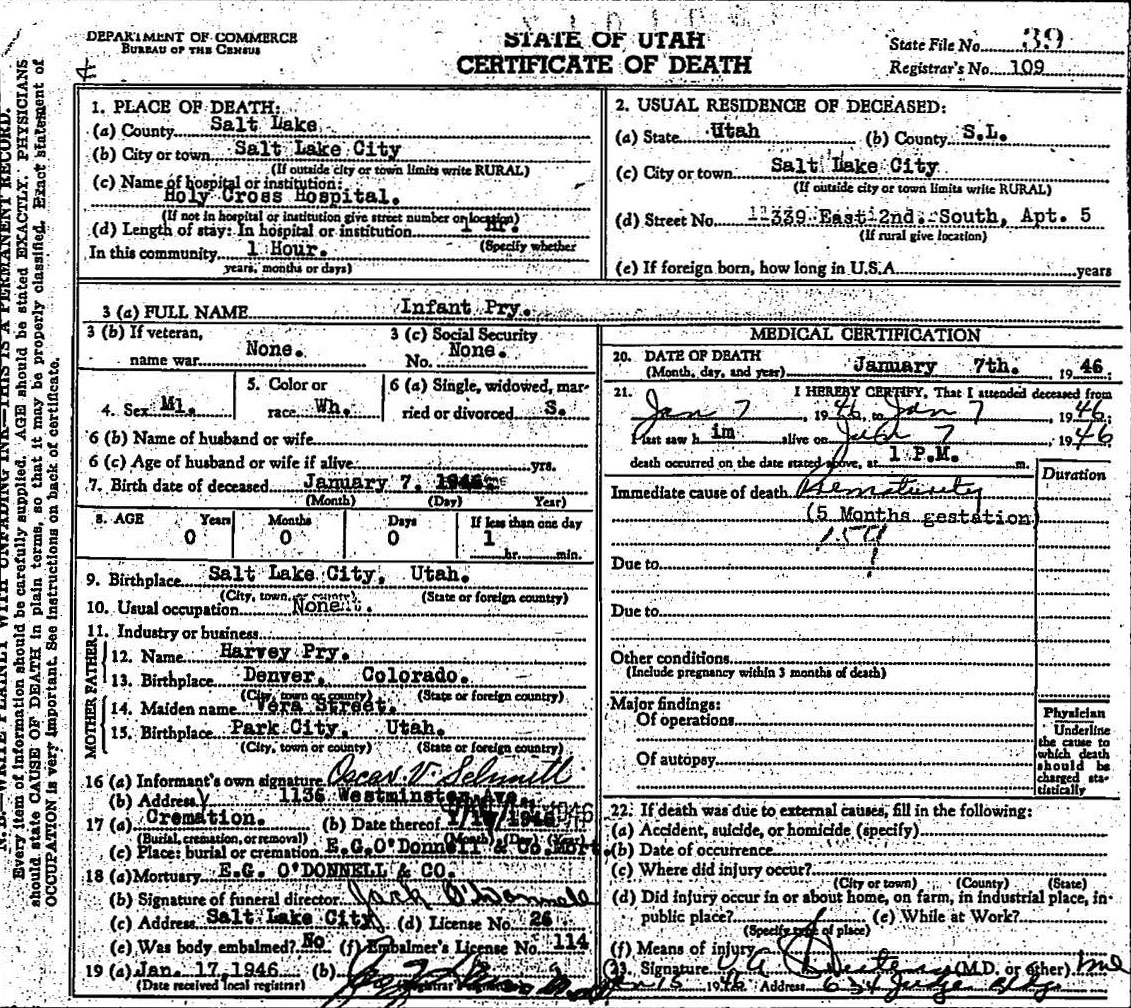 DEPARTMENT OF COMMERCE
BUREAU OF THE CENSUS
STATE OF UTAH
CERTIFICATE OF DEATH
State File No. 39
Registrar's No. 109
N. B.—WRITE PLAINLY WITH UNFADING INK—THIS IS A PERMANENT RECORD.
Every item of information should be carefully supplied. AGE should be stated EXACTLY. PHYSICIANS
should state CAUSE OF DEATH in plain terms, so that it may be properly classified. Exact statement of
OCCUPATION is very important. See instructions on back of certificate.
1. PLACE OF DEATH:
(a) County Salt Lake
(b) City or town Salt Lake City
(If outside city or town limits write RURAL)
(c) Name of hospital or institution:
Holy Cross Hospital.
(If not in hospital or institution give street number or location)
(d) Length of stay: In hospital or institution 1 Hr.
(Specify whether
In this community 1 Hour.
years, months or days)
2. USUAL RESIDENCE OF DECEASED:
(a) State Utah (b) County S.L.
(c) City or town Salt Lake City
(If outside city or town limits write RURAL)
(d) Street No. 339 East 2nd. South, Apt. 5
(If rural give location)
(e) If foreign born, how long in U.S.A. years
3 (a) FULL NAME Infant Pry.
3 (b) If veteran,
name war None.
3 (c) Social Security
No. None.
4. Sex Ml.
5. Color or
race Wh.
6 (a) Single, widowed, mar-
ried or divorced S.
6 (b) Name of husband or wife
6 (c) Age of husband or wife if alive yrs.
7. Birth date of deceased January 7, 1946
(Month) (Day) Year)
8. AGE Years Months Days If less than one day
0 0 0 1
hr. min.
9. Birthplace Salt Lake City, Utah.
(City, town, or county) (State or foreign country)
10. Usual occupation None
11. Industry or business
FATHER
12. Name Harvey Pry.
13. Birthplace Denver, Colorado.
(City, town or county) (State or foreign country)
MOTHER
14. Maiden name Vera Street.
15. Birthplace Park City, Utah.
(City, town or county) (State or foreign country)
16 (a) Informant's own signature Oscar V. Schmitt
(b) Address 1136 Westminster Ave.
17 (a) Cremation. (b) Date thereof 1946
(Burial, cremation, or removal) (Month) (Day) (Year)
(c) Place: burial or cremation E.G.O'Donnell & Co. Mort.
18 (a) Mortuary E.G. O'DONNELL & CO.
(b) Signature of funeral director Jack O'Donnell
(c) Address Salt Lake City (d) License No. 26
(e) Was body embalmed? No (f) Embalmer's License No. 114
19 (a) Jan. 17, 1946 (b)
(Date received local registrar) Registrar's
MEDICAL CERTIFICATION
20. DATE OF DEATH
(Month, day, and year) January 7th. 1946;
21. I HEREBY CERTIFY, That I attended deceased from
Jan 7, 1946 to Jan 7, 1946
I last saw h im alive on Jan 7, 1946
death occurred on the date stated above, at 1 P.M. m.
Duration
Immediate cause of death Prematurity
(5 Months gestation)
159
Due to
Due to
Other conditions
(Include pregnancy within 3 months of death)
Major findings:
Of operations
Of autopsy
Physician
Underline
the cause to
which death
should be
charged sta-
tistically
22. If death was due to external causes, fill in the following:
(a) Accident, suicide, or homicide (specify)
(b) Date of occurrence
(c) Where did injury occur?
(City or town) (County) (State)
(d) Did injury occur in or about home, on farm, in industrial place, in-
public place? (e) While at Work?
(Specify type of place)
(f) Means of injury
23. Signature (M.D. or other) MD
Jan 15 1946 Address 634 Judge Bldg.